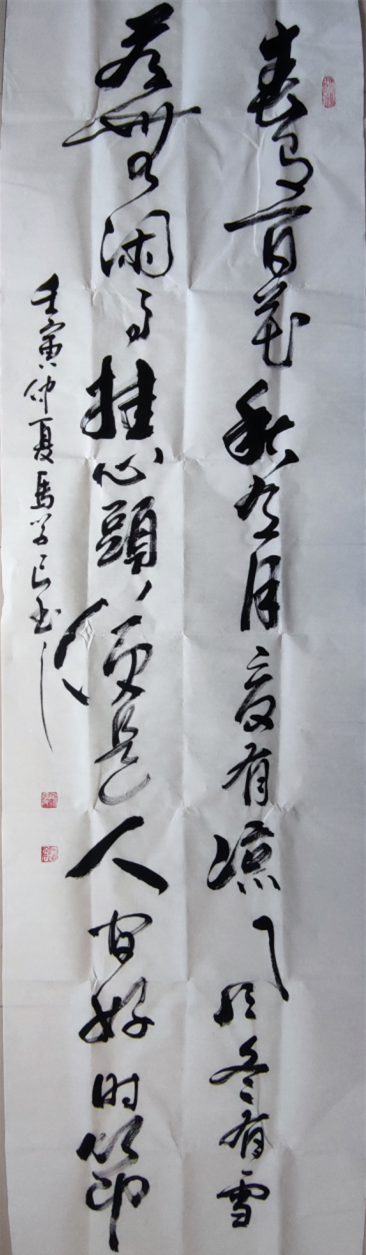 春有百花秋有月夏有凉风冬有雪
若無闲事挂心頭便是人间好时節
壬寅仲夏馬学己书